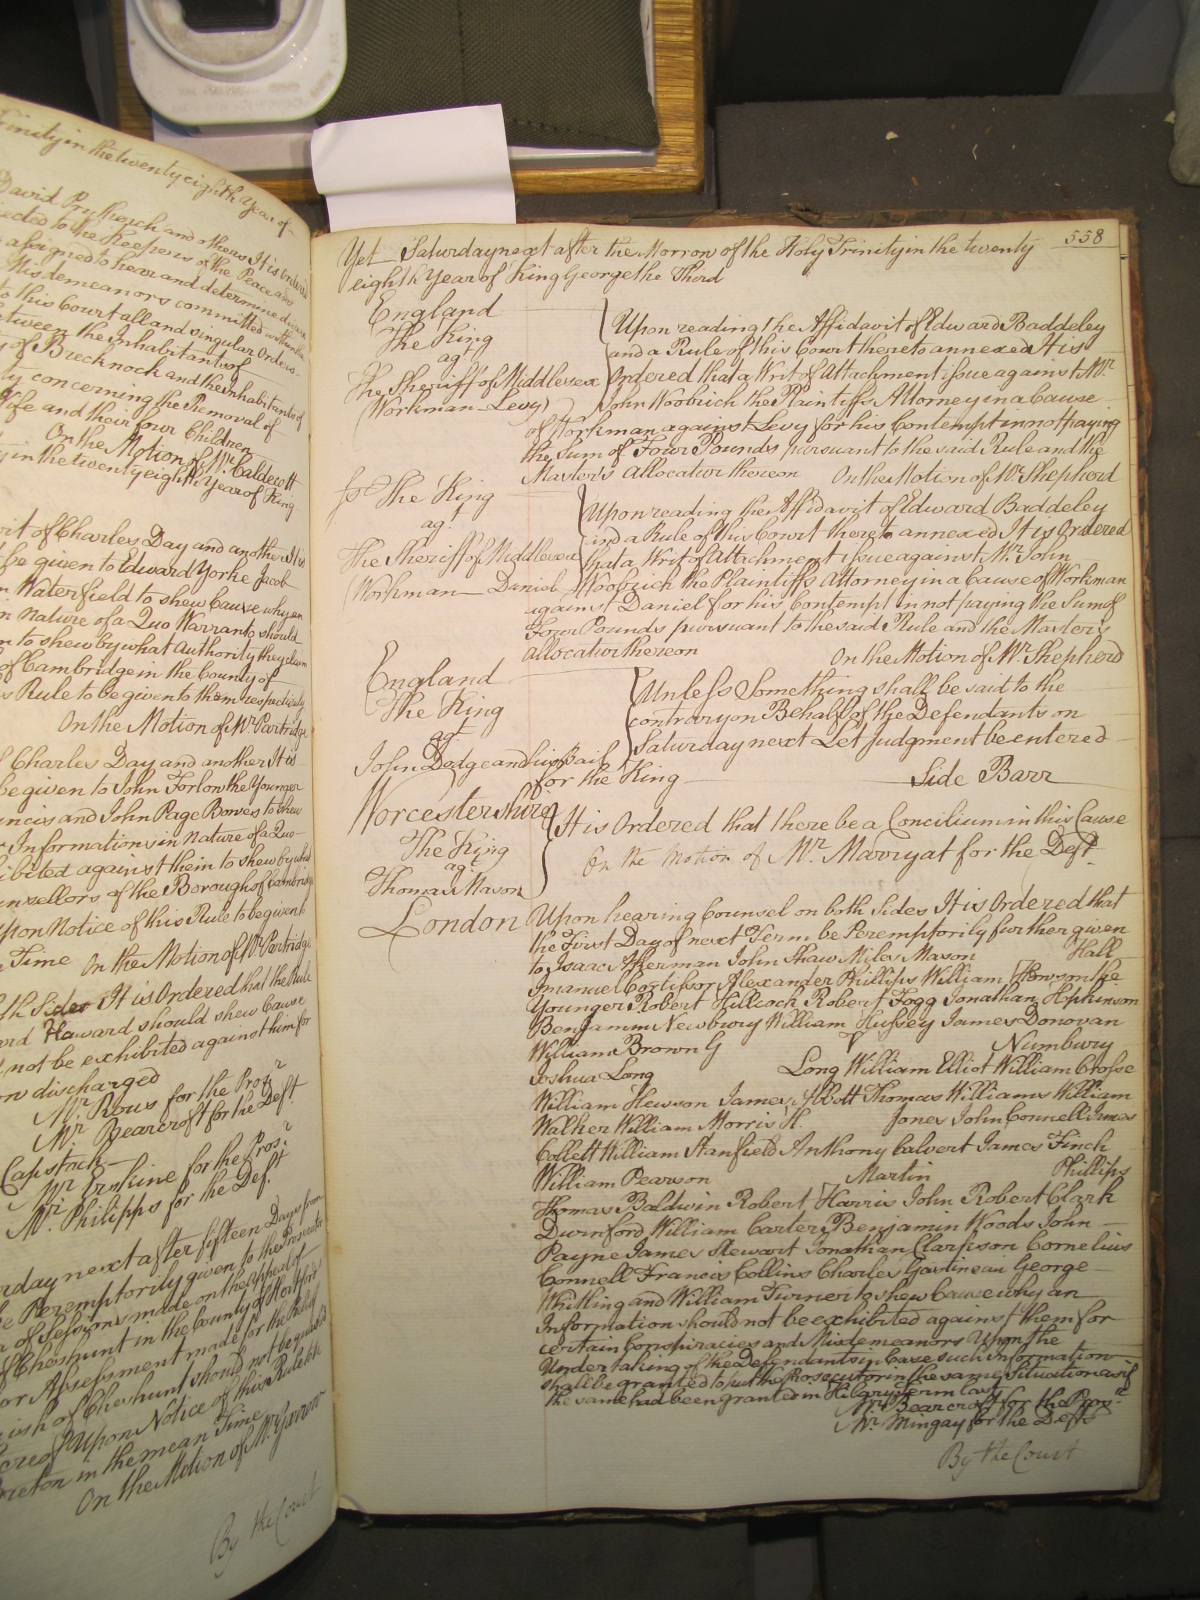 Trinity in the twenty eighth Year of
David Prytherch and others It is Ordered
to the Keepers of the Peace and
assigned to hear and determine divers
Misdemeanors committed within
to this Court all and singular Orders
between the Inhabitants of
of Brecknock and the Inhabitants of
concerning the Removal of
Wife and their four Children
On the Motion of Mr. Caldecott
in the twenty eighth Year of King
of Charles Day and another It is
be given to Edward Yorke Jacob
Waterfield to shew Cause why an
in Nature of a Quo Warranto should
to shew by what Authority they claim
of Cambridge in the County of
Rule to be given to them respectively
On the Motion of Mr. Partridge
Charles Day and another It is
be given to John Forlow the Younger
Francis and John Page Bowes to shew
Informations in Nature of a Quo
exhibited against them to shew by what
Counsellors of the Borough of Cambridge
upon Notice of this Rule to be given to
Time On the Motion of Mr. Partridge
both Sides It is Ordered that the Rule
Haward should shew Cause
not be exhibited against him for
discharged
Mr. Rous for the Pros.r
Mr. Bearcroft for the Deft.
Capstack
Mr. Erskine for the Pros.r
Mr. Philipps for the Def.t
next after fifteen Days from
Peremptorily given to the Prosecutor
of Sessions made on the Appeal of
of Cheshunt in the County of Hertford
or Assessment made for the Relief
of Cheshunt should not be quashed
Upon Notice of this Rule to be
in the mean Time
On the Motion of Mr. Garrow
By the Court
558
Yet Saturday next after the Morrow of the Holy Trinity in the twenty
eighth Year of King George the Third
England
The King
ag.t
The Sheriff of Middlesex
(Workman — Levy)
Upon reading the Affidavit of Edward Baddeley
and a Rule of this Court thereto annexed It is
Ordered that a Writ of Attachment issue against Mr.
John Woobrich the Plaintiffs Attorney in a Cause
of Workman against Levy for his Contempt in not paying
the Sum of Four Pounds pursuant to the said Rule and the
Master's Allocatur thereon On the Motion of Mr. Shepherd
The King
ag.t
The Sheriff of Middlesex
(Workman — Daniel
Upon reading the Affidavit of Edward Baddeley
and a Rule of this Court thereto annexed It is Ordered
that a Writ of Attachment issue against Mr. John
Woobrich the Plaintiffs Attorney in a Cause of Workman
against Daniel for his Contempt in not paying the Sum of
Four Pounds pursuant to the said Rule and the Master's
allocatur thereon On the Motion of Mr. Shepherd
England
The King
ag.t
John Dodge and his Bail
Unless Something shall be said to the
contrary on Behalf of the Defendants on
Saturday next Let Judgment be entered
for the King — Side Barr
Worcestershire
The King
ag.t
Thomas Mason
It is Ordered that there be a Concilium in this Cause
On the Motion of Mr. Marryat for the Deft.
London
Upon hearing Counsel on both Sides It is Ordered that
the First Day of next Term be Peremptorily further given
to Isaac Akerman John Shaw Miles Mason Hall
Imanuel Alexander Phillips William Hewson the
Younger Robert Hillcock Robert Fogg Jonathan Hopkinson
Benjamin Newbury William Hussey James Donovan
William Brown G Numbury
Joshua Long Long William Elliot William Crosse
William Hewson James Abbott Thomas Williams William
Walker William Morris H. Jones John Connell James
Collett William Stanfield Anthony Calvert James Finch
William Pearson Martin Phillips
Thomas Baldwin Robert Harris John Robert Clark
Durnford William Carter Benjamin Woods John
Payne James Stewart Jonathan Clarkson Cornelius
Connell Francis Collins Charles Gastineau George
Whitling and William Turner to shew Cause why an
Information should not be exhibited against them for
certain Conspiracies and Misdemeanors Upon the
Undertaking of the Defendants in Case such information
shall be granted to put the Prosecutor in the same Situation as if
the same had been granted in Hilary Term last
Mr. Bearcroft for the Pros.r
Mr. Mingay for the Defts
By the Court